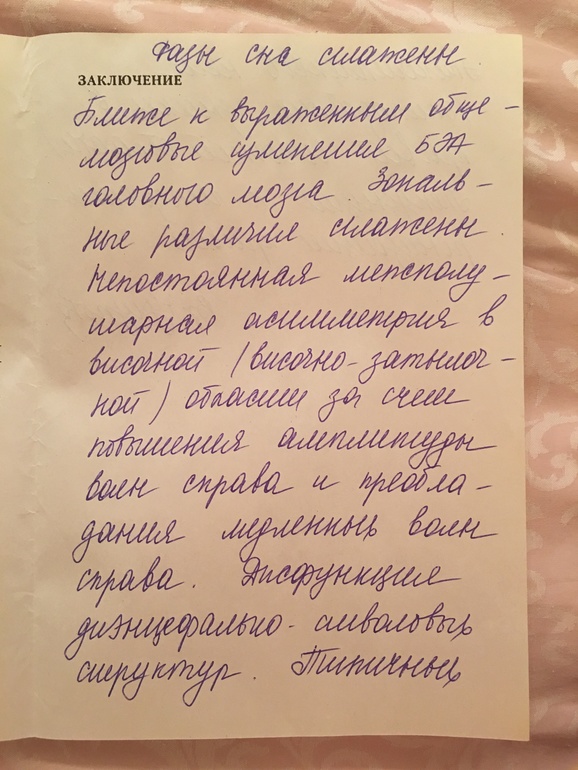 Фазы сна сглажены.
ЗАКЛЮЧЕНИЕ
Ближе к выраженным обще-
мозговые изменения БЭА
головного мозга. Зональ-
ные различия сглажены.
Непостоянная межполу-
шарная асимметрия в
височной (височно-затылоч-
ной) области за счет
повышения амплитуды
волн справа и преобла-
дания медленных волн
справа. Дисфункция
диэнцефально-стволовых
структур. Типичных